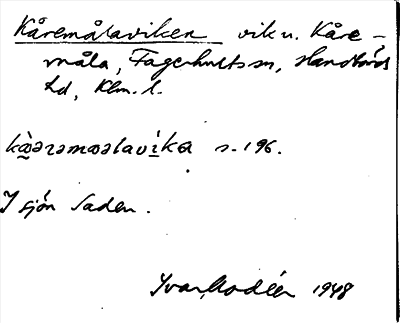 Kåremålaviken vik u. Kåre-
måla, Fagerhults sn, Handbörds
hd, Klm. l.
kà̱ərəmɷəlaví̱ka s. 196.
I sjön Saden.
Yvar Modéer 1948